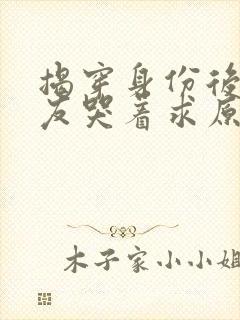 揭穿身份後
友哭着求原
木子家小小姐